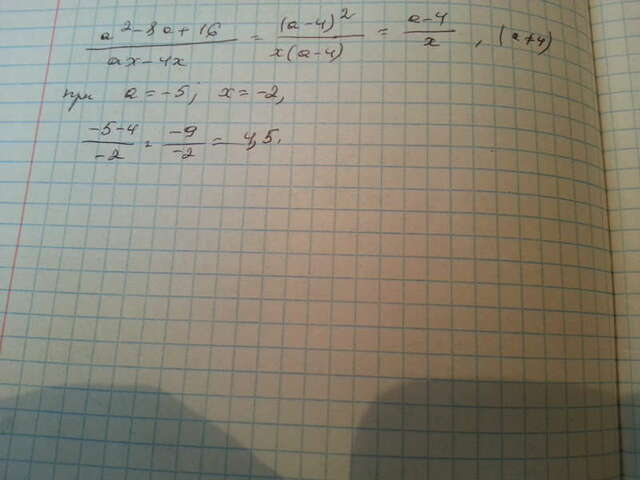 a²-8a+16 / ax-4x = (a-4)² / x(a-4) = a-4 / x , (a≠4)
при a=-5; x=-2,
-5-4 / -2 = -9 / -2 = 4,5.